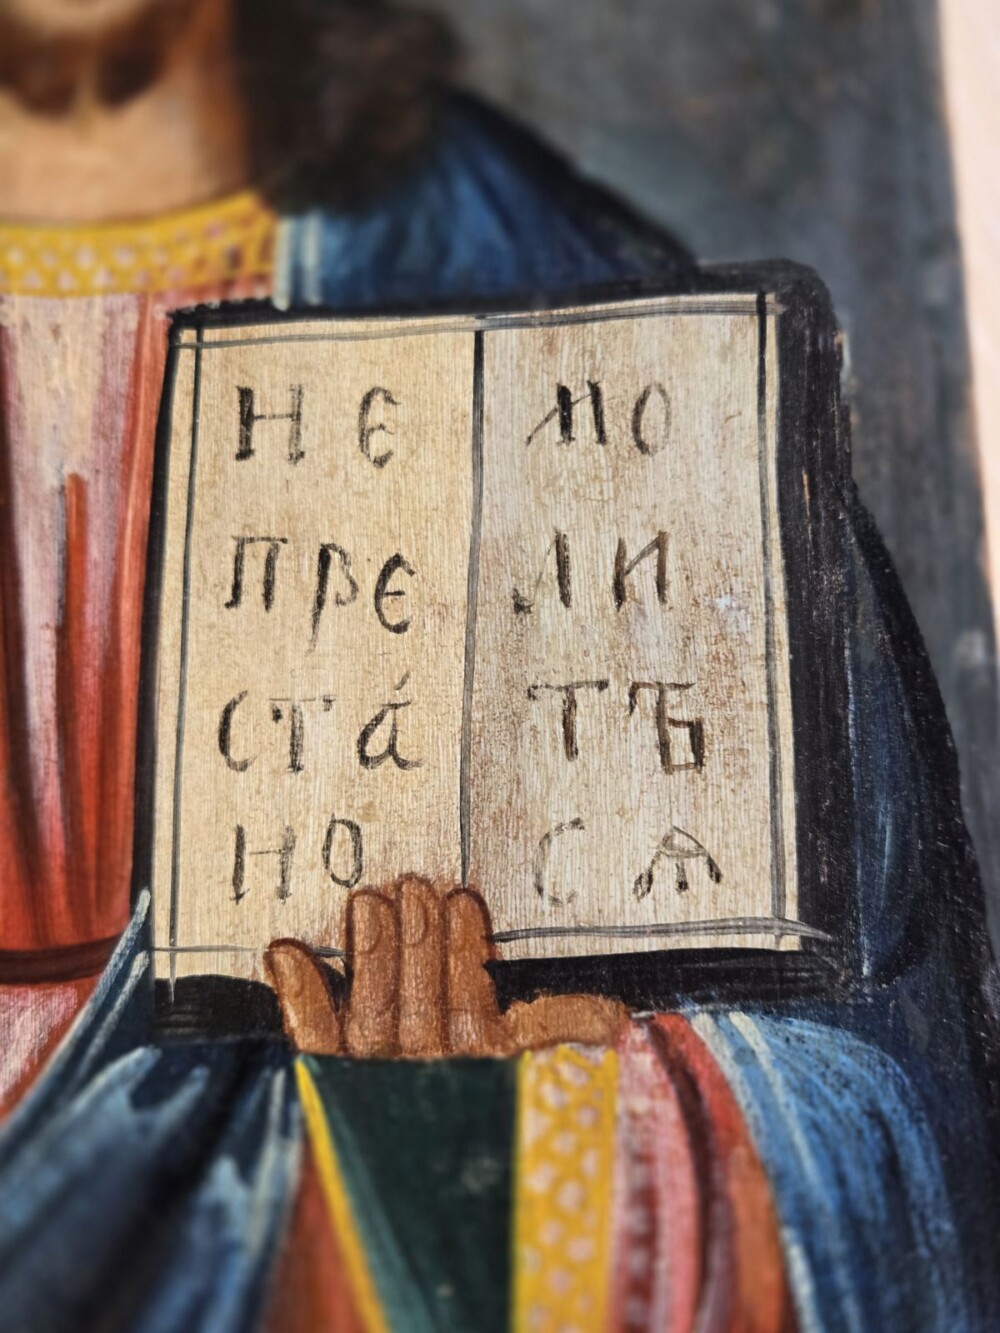 НЄ
ПРЄ
СТА́
НО
МО
ЛИ
ТЪ
СѦ